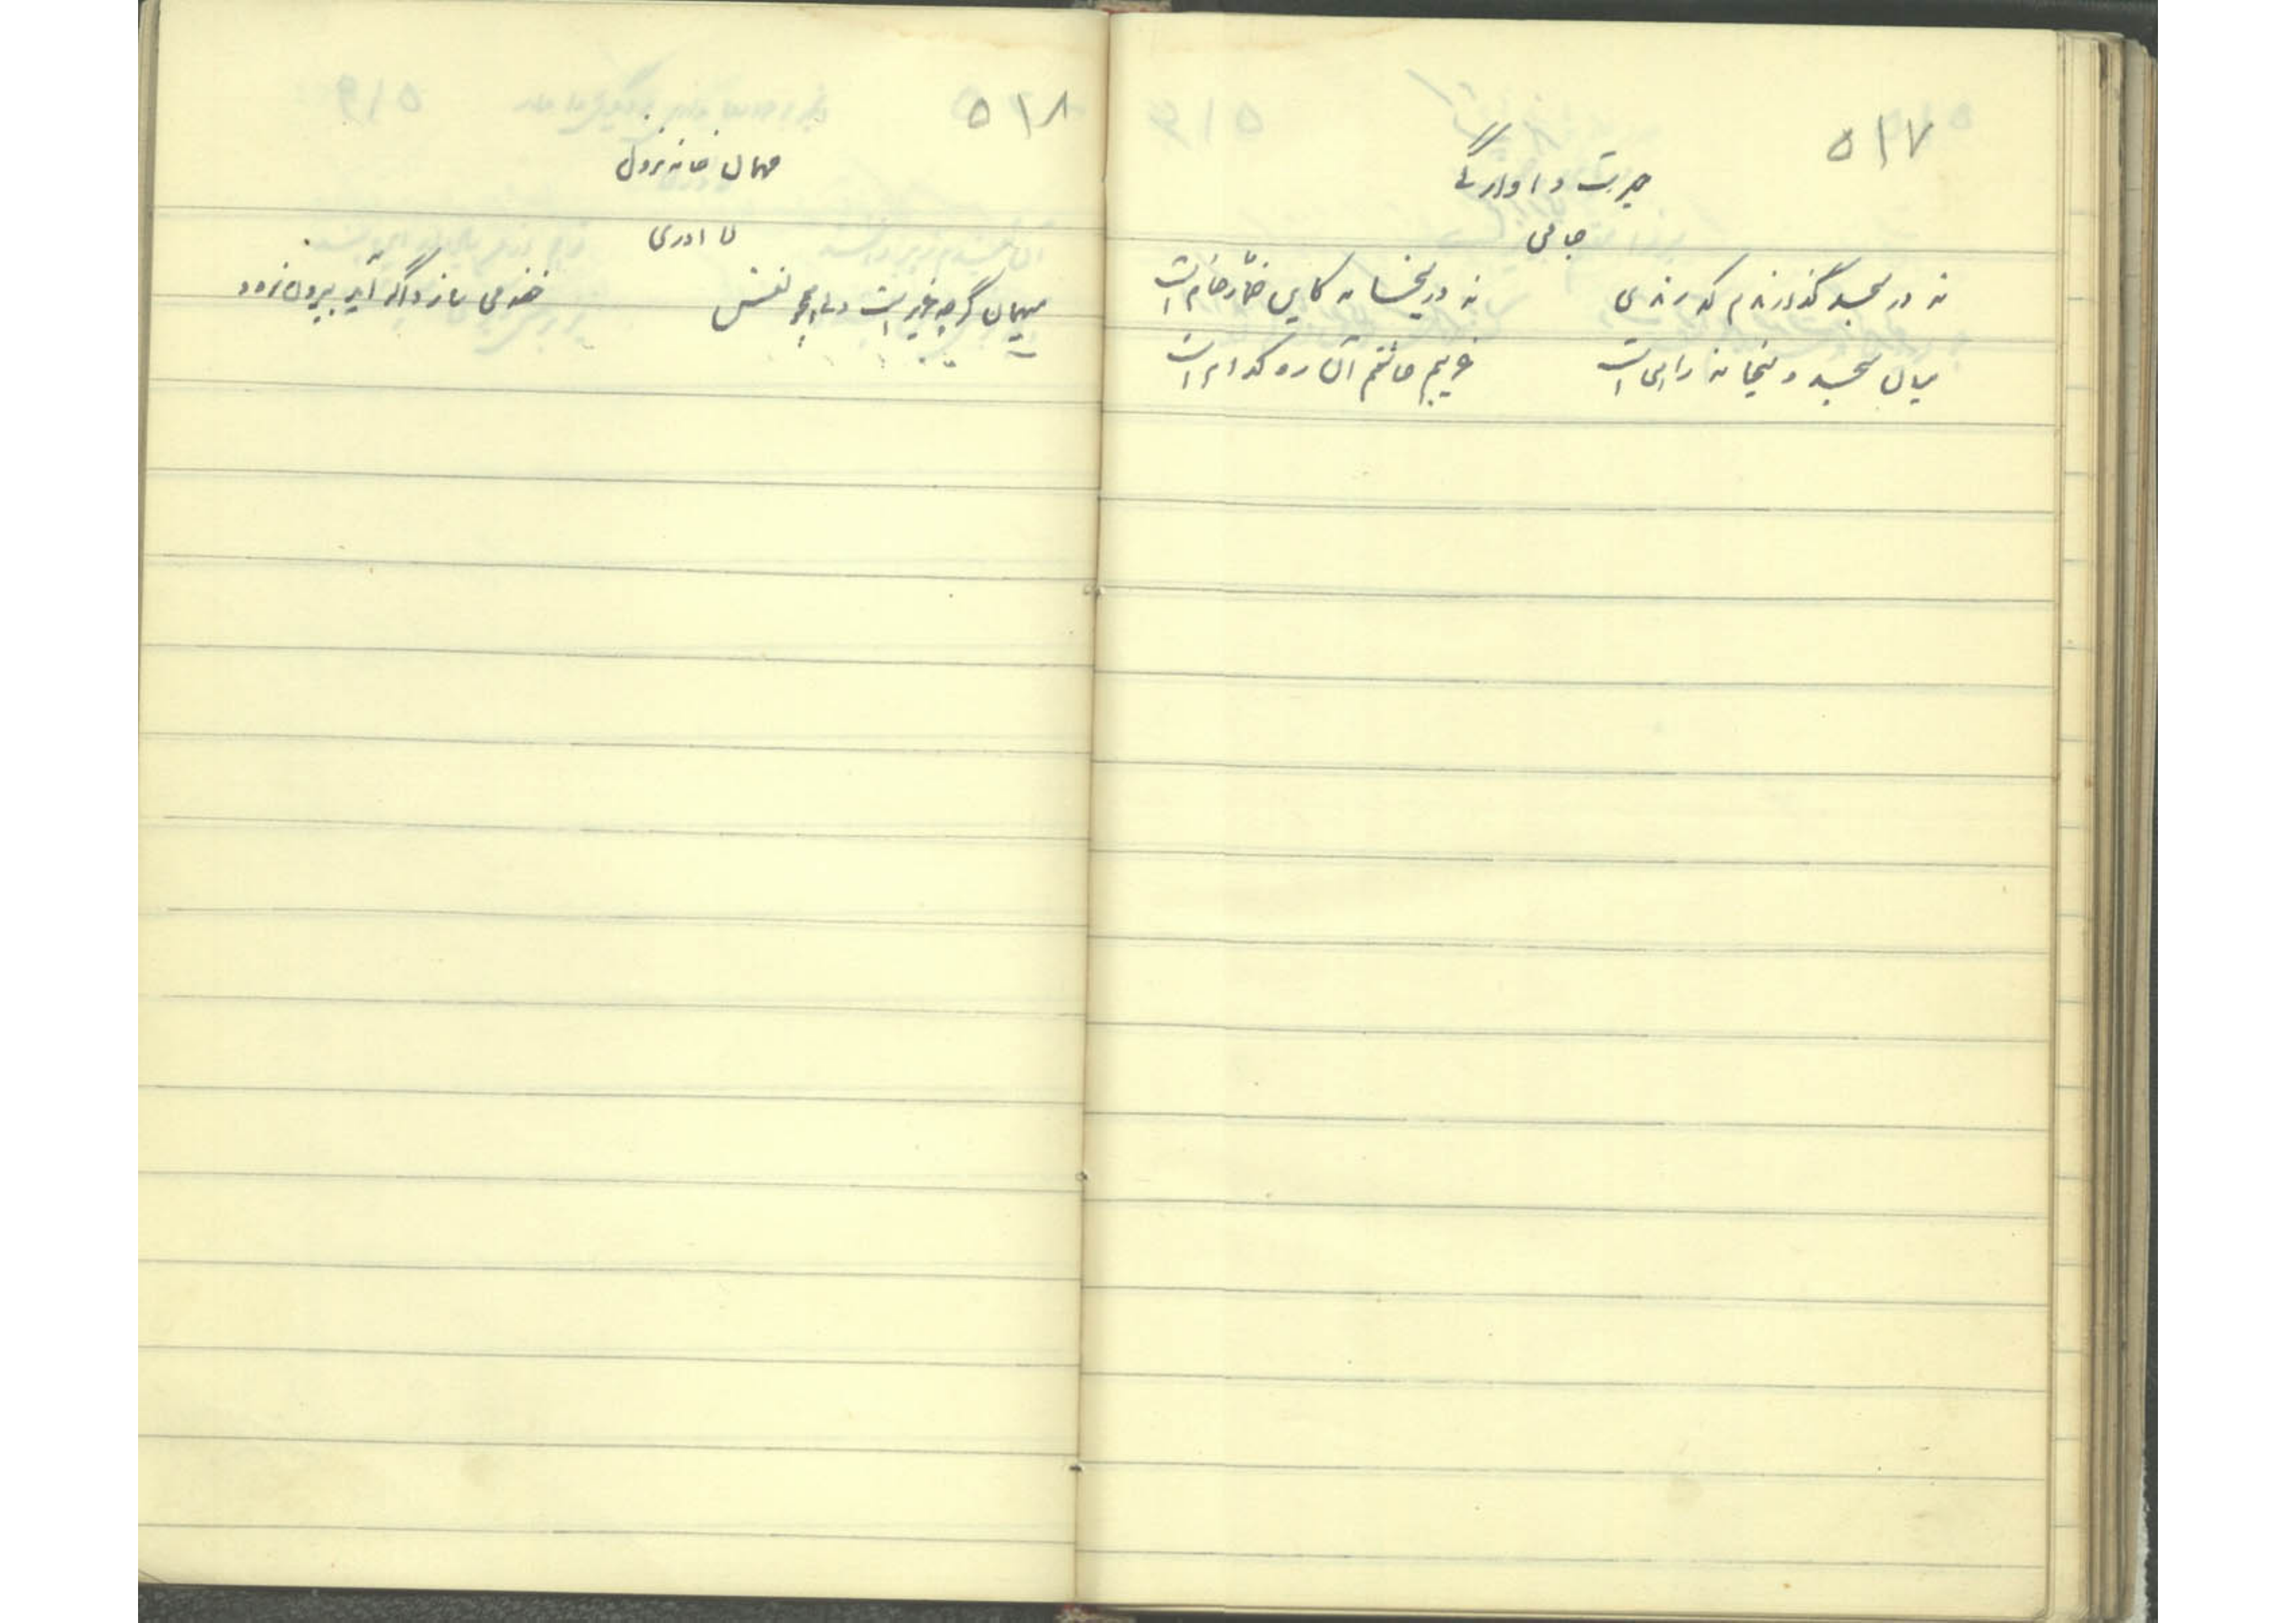 ۵۱۷
حیرت و آوارگی
جامی
نه در مسجد گذارندم که رندی
نه در میخانه کاین خمار خام است
میان مسجد و میخانه راهی است
غریبم عاشقم آن ره کدام است
۵۱۸
مهمان خانه نزول
لا ادری
میهمان گرچه عزیز است ولی همچو نفس
خفه می سازد اگر آید و بیرون نرود